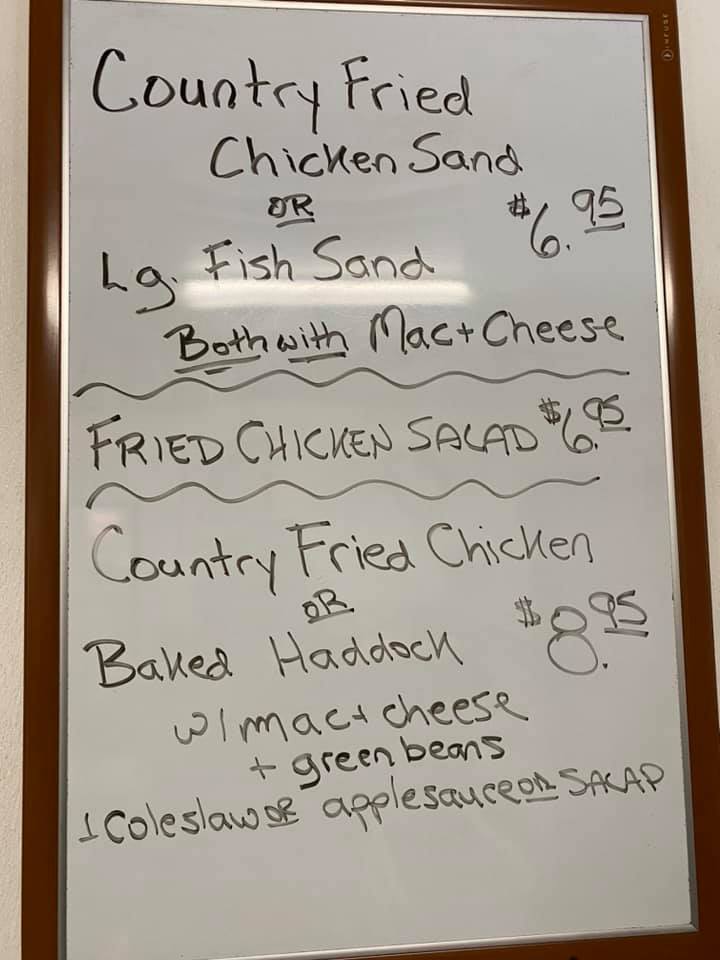 INFUSE
Country Fried
Chicken Sand
OR
$6.95
Lg. Fish Sand
Both with Mac + Cheese
FRIED CHICKEN SALAD $6.95
Country Fried Chicken
OR
$8.95
Baked Haddock
w/ mac + cheese
+ green beans
+ Coleslaw OR applesauce OR SALAD